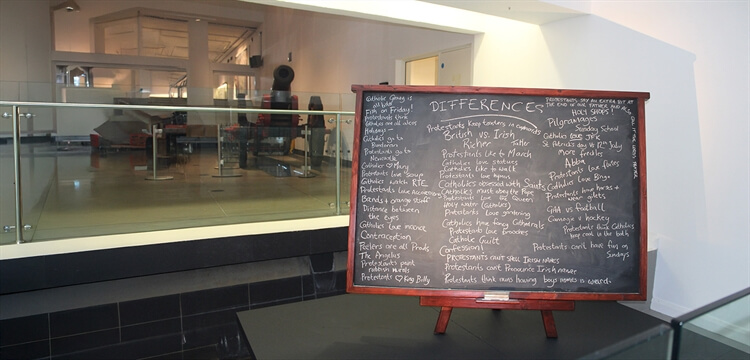 DIFFERENCES
Catholic Gravy is all bisto
Fish on Friday!
Protestants think
Catholics are all idiots
Holidays -
Catholics go to
Bundoran
Protestants go to
Newcastle
Catholics ♡ Mary
Protestants love "Soup"
Catholics watch RTE
Protestants love
Bands + orange stuff
Distance between
the eyes
Catholics love incense
Contraception
Peelers are all Prods
The Angelus
Protestants paint
rubbish murals
Protestants ♡ King Billy
Protestants Keep toasters in cupboards
British vs. Irish
Richer Taller
Protestants like to March
Catholics love statues
Catholics like to walk
Protestants love
Catholics obsessed with Saints
Catholics must obey the Pope
Protestants love the Queen
Holy water (Catholics)
Protestants love gardening
Catholics have fancy Cathedrals
Protestants love brooches
Catholic Guilt
Confession!
PROTESTANTS CAN'T SPELL IRISH NAMES
Protestants can't Pronounce Irish names
Protestants think nuns having boys names is weird.
PROTESTANTS SAY AN EXTRA BIT AT
THE END OF OUR FATHER
HOLY SHOPS!
Pilgrimages
Sunday School
Catholics
St. Patricks day vs 12th July
more freckles
Abba
Protestants love flutes
Catholics love Bingo
Protestants have horses +
wear gilets
GAA vs football
Camogie v hockey
Protestants think Catholics
keep coal in the bath
Protestants can't have fun on
Sundays